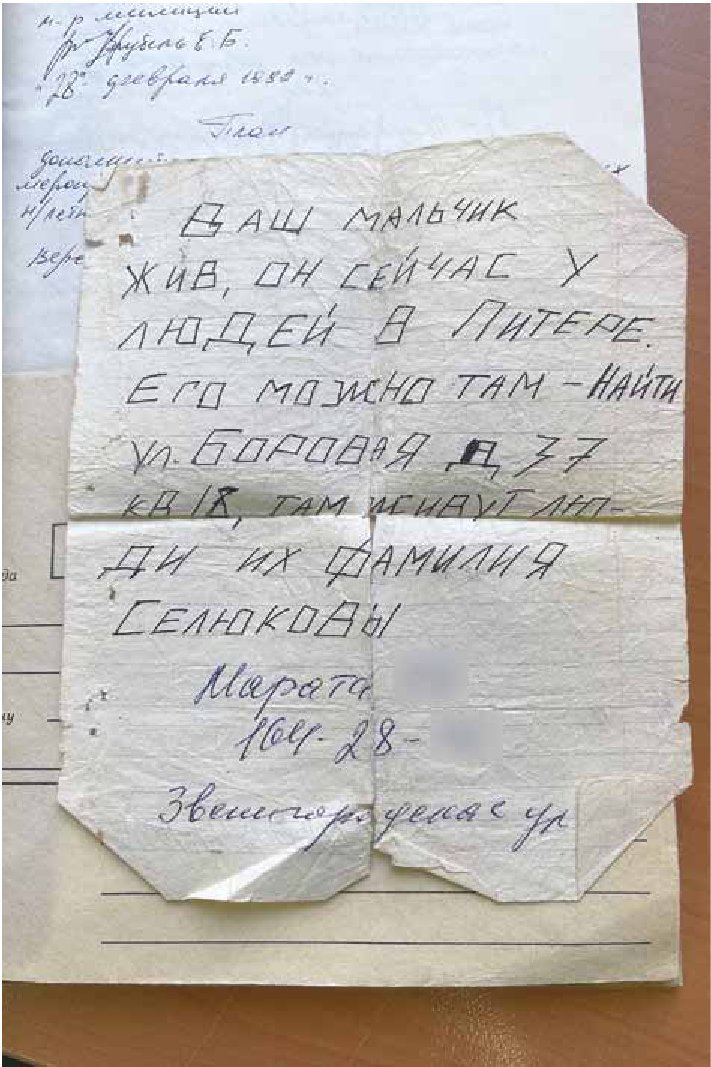 м-р милиции
Е. Б.
"28" февраля 1990 г.
План
ВАШ МАЛЬЧИК
ЖИВ, ОН СЕЙЧАС У
ЛЮДЕЙ В ПИТЕРЕ.
ЕГО МОЖНО ТАМ – НАЙТИ
УЛ. БОРОВАЯ Д 37
КВ 18, ТАМ ЖИВУТ ЛЮ-
ДИ ИХ ФАМИЛИЯ
СЕЛЮКОВЫ
Марата
164-28-
Звенигородская ул